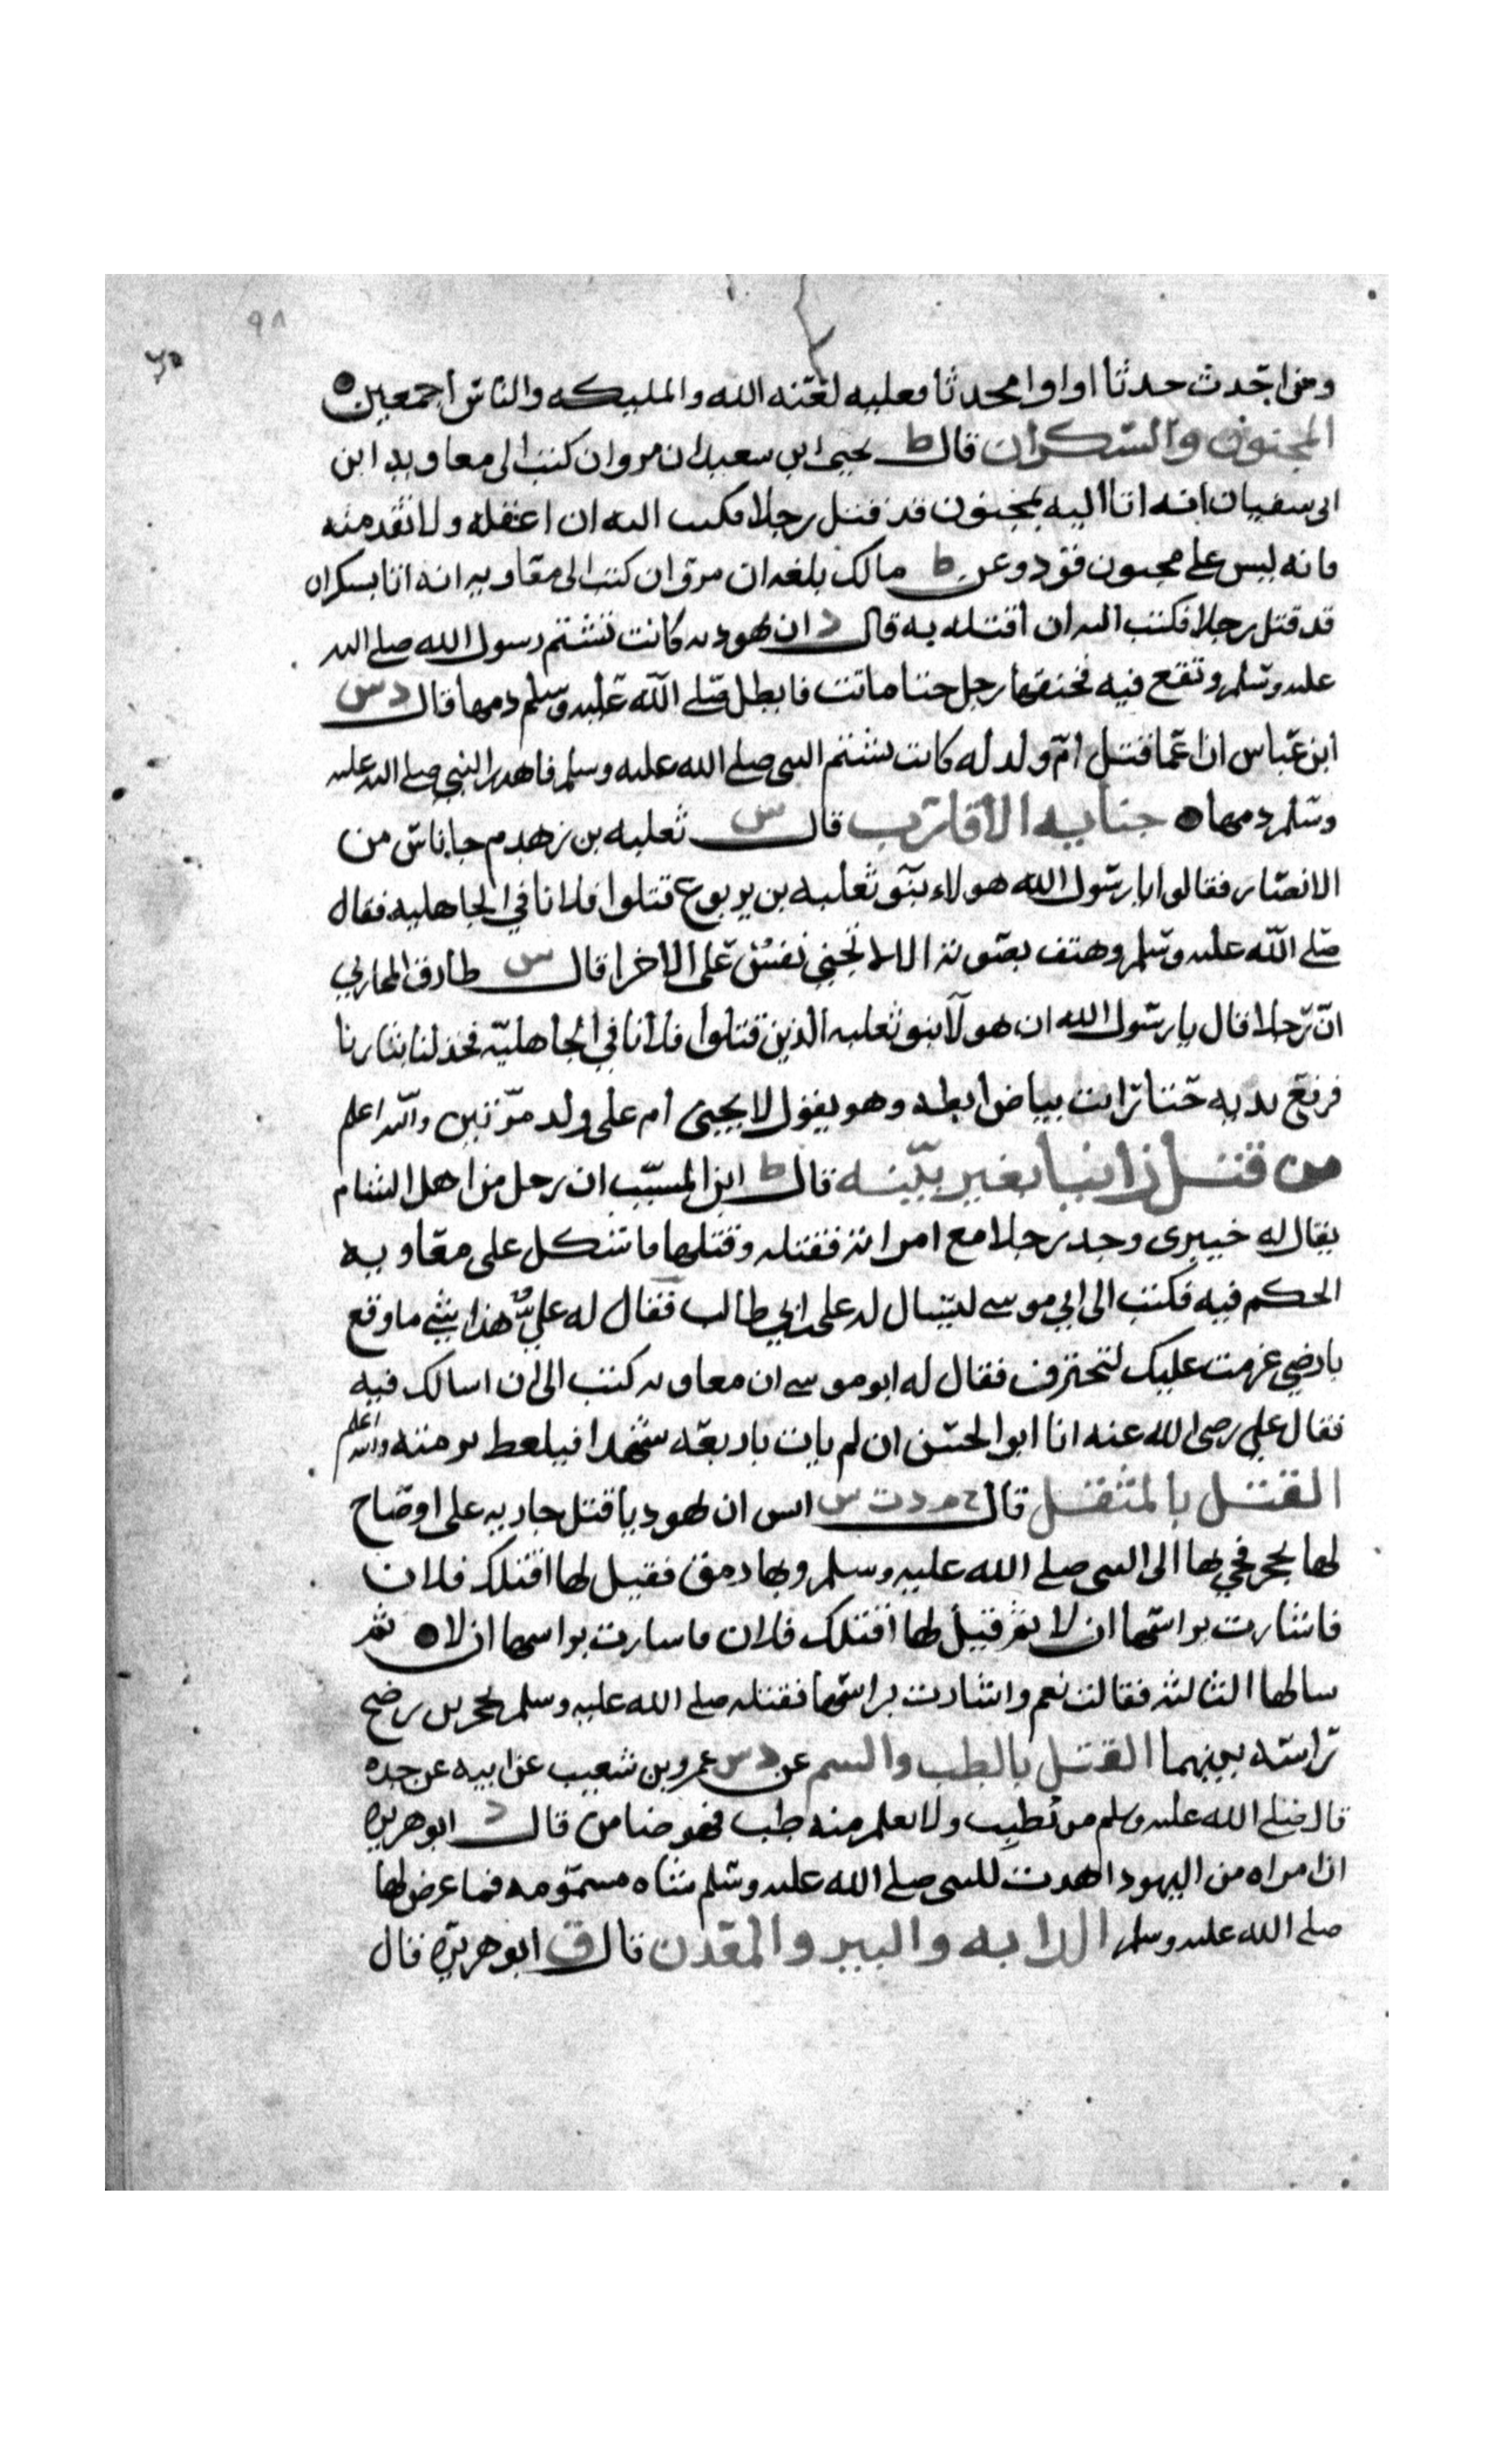 ٩٨
ومن احدث حدثا او اوا محدثا فعليه لعنه الله والمليكه والناس اجمعين
المجنون والسكران قال ط يحيى ابن سعيد ان مروان كتب الى معاويه ابن
ابي سفيان انه اتا اليه بمجنون قد قتل رجلا فكتب اليه ان اعقله ولا تقد منه
فانه ليس على مجنون قود وعن ط مالك بلغه ان مروان كتب الى معاويه انه اتا بسكران
قد قتل رجلا فكتب اليه ان اقتله به قال د ان يهوديه كانت تشتم رسول الله صلى الله
عليه وسلم وتقع فيه فخنقها رجل حتا ماتت فابطل صلى الله عليه وسلم دمها قال د س
ابن عباس ان اعما قتل ام ولد له كانت تشتم النبي صلى الله عليه وسلم فاهدر النبي صلى الله عليه
وسلم دمها جنايه الاقارب قال س ثعلبه بن زهدم جا ناس من
الانصار فقالوا يا رسول الله هولاء بنو ثعلبه بن يربوع قتلوا فلانا في الجاهليه فقال
صلى الله عليه وسلم وهتف بصوته الا لا تجني نفس على الاخرا قال س طارق المحاربي
ان رجلا قال يا رسول الله ان هولآ بنو ثعلبه الذين قتلوا فلانا في الجاهلية فخذ لنا بثارنا
فرفع يديه حتا رايت بياض ابطيه وهو يقول لا يجني ام على ولد مرتين والله اعلم
من قتل زانيا بغير بينه قال ط ابن المسيب ان رجل من اهل الشام
يقال له خيبري وجد رجلا مع امراته فقتله وقتلها فاشكل على معاويه
الحكم فيه فكتب الى ابي موسى ليسال له علي ابن ابي طالب فقال له علي هذا شي ما وقع
بارضي عزمت عليك لتخبرني فقال له ابو موسى ان معاويه كتب الى ان اسالك فيه
فقال علي رضي الله عنه انا ابو الحسن ان لم يات باربعه شهدا فليعط برمته والله اعلم
القتل بالمثقل قال خ م د ت س انس ان يهوديا قتل جاريه على اوضاح
لها بحجر فجي بها الى النبي صلى الله عليه وسلم وبها رمق فقيل لها اقتلك فلان
فاشارت براسها ان لا ثم قيل لها اقتلك فلان فاسارت براسها ان لا ثم
سالها الثالثه فقالت نعم واشارت براسها فقتله صلى الله عليه وسلم بحجرين رضخ
راسه بينهما القتل بالطب والسم عن د س عمرو بن شعيب عن ابيه عن جده
قال صلى الله عليه وسلم من تطبب ولا يعلم منه طب فهو ضامن قال د ابو هريره
ان امراه من اليهود اهدت للنبي صلى الله عليه وسلم شاه مسمومه فما عرض لها
صلى الله عليه وسلم الدابه والبير والمعدن قال ق ابو هريره قال